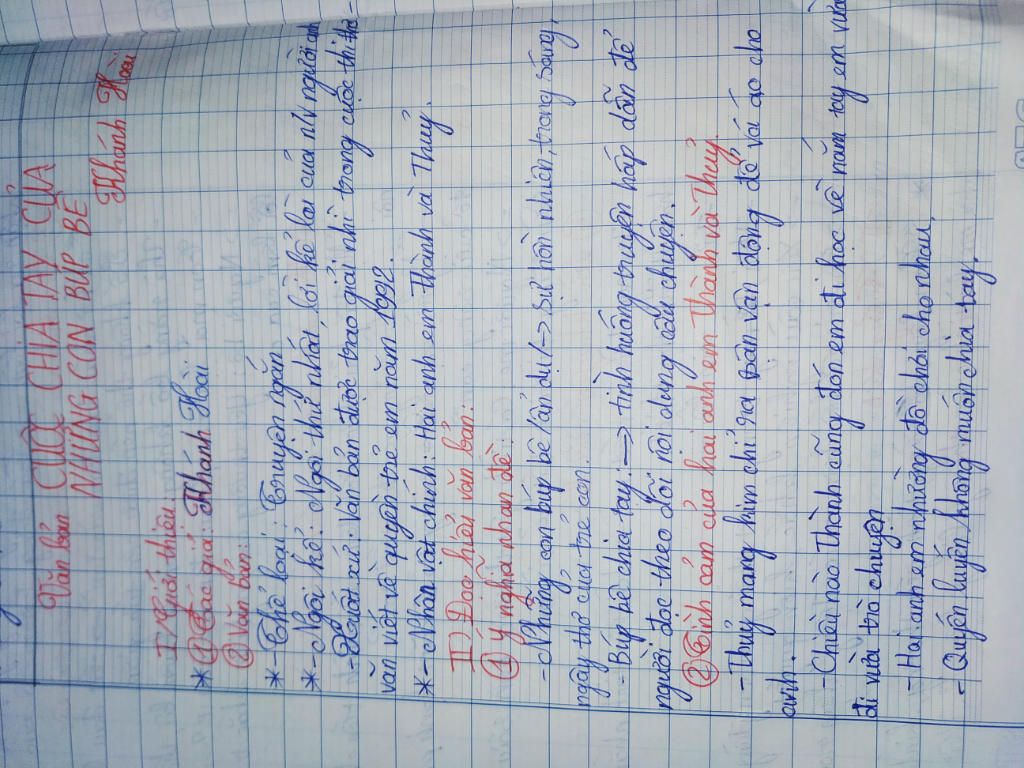 Văn bản CUỘC CHIA TAY CỦA
NHỮNG CON BÚP BÊ
Khánh Hoài
I/ Giới thiệu:
* ① Tác giả: Khánh Hoài.
② Văn bản:
* - Thể loại: Truyện ngắn
* - Ngôi kể: Ngôi thứ nhất, lời kể là của n/v người anh
- Xuất xứ: Văn bản được trao giải nhì trong cuộc thi thơ -
văn viết về quyền trẻ em năm 1992.
* - Nhân vật chính: Hai anh em Thành và Thuỷ.
II) Đọc hiểu văn bản:
① Ý nghĩa nhan đề:
- Những con búp bê (ẩn dụ) -> Sự hồn nhiên, trong sáng,
ngây thơ của trẻ con.
- Búp bê chia tay. => tình huống truyện hấp dẫn để
người đọc theo dõi nội dung câu chuyện.
② Tình cảm của hai anh em Thành và Thuỷ
- Thuỷ mang kim chỉ ra sân vận động để vá áo cho
anh.
- Chiều nào Thành cũng đón em đi học về nắm tay em vừa
đi vừa trò chuyện
- Hai anh em nhường đồ chơi cho nhau.
- Quyến luyến, không muốn chia tay.